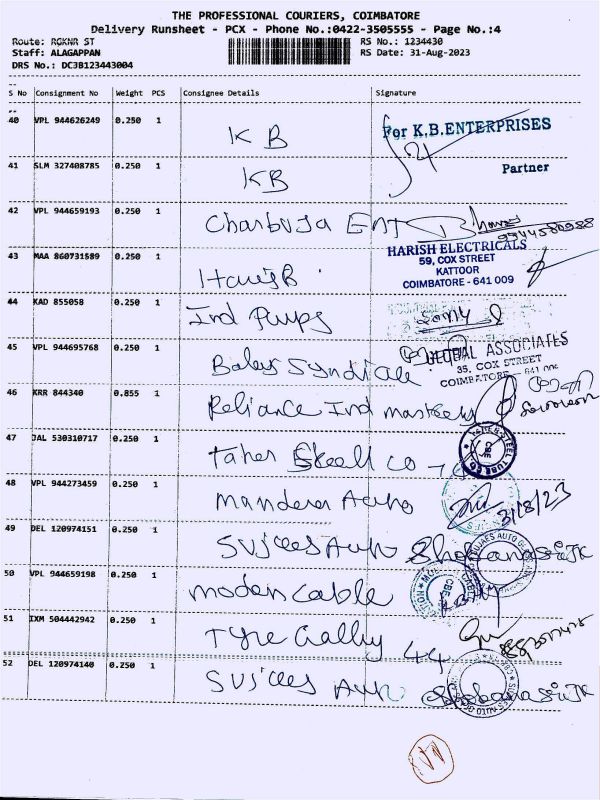 THE PROFESSIONAL COURIERS, COIMBATORE
Delivery Runsheet - PCX - Phone No.:0422-3505555 - Page No.:4
Route: RGKNR ST RS No.: 1234430
Staff: ALAGAPPAN RS Date: 31-Aug-2023
DRS No.: DC3B123443004
S No Consignment No Weight PCS Consignee Details Signature
40 VPL 944626249 0.250 1 KB For K.B.ENTERPRISES
Partner
41 SLM 327408785 0.250 1 KB
42 VPL 944659193 0.250 1 Charbuja ENT
HARISH ELECTRICALS
59, COX STREET
KATTOOR
COIMBATORE - 641 009
43 MAA 860731589 0.250 1 Haris B
44 KAD 855058 0.250 1 Ind Pumps
45 VPL 944695768 0.250 1 Balaji Syndicate GLOBAL ASSOCIATES
35, COX STREET
COIMBATORE - 641 009
46 KRR 844340 0.855 1 Reliance Ind
47 JAL 530310717 0.250 1 Taher Steell co
48 VPL 944273459 0.250 1 Auto 31/8/23
49 DEL 120974151 0.250 1 Auto Shobana
50 VPL 944659198 0.250 1 modern cable
51 IXM 504442942 0.250 1 Tyre Gallry 44
52 DEL 120974140 0.250 1 Auto Shobana